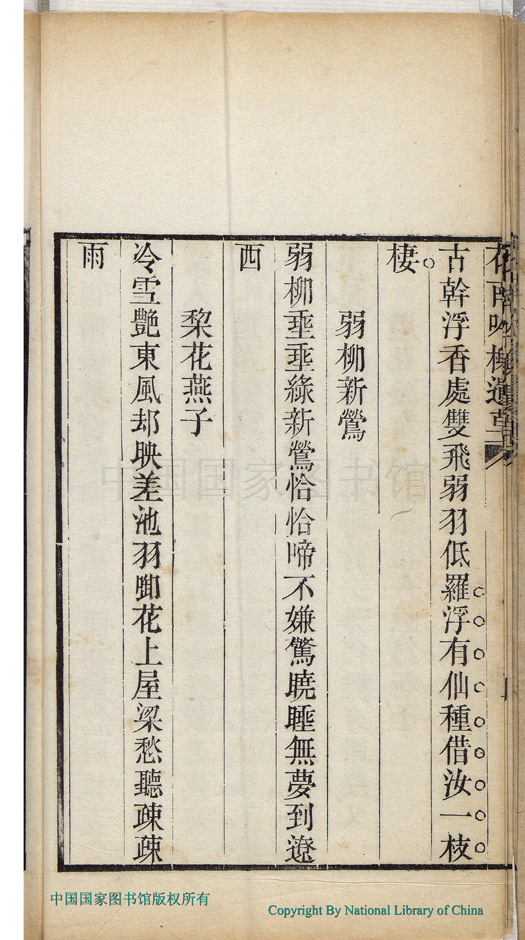 古幹浮香處雙飛弱羽低羅浮有仙種借汝一枝
棲
弱柳新鶯
弱柳垂垂綠新鶯恰恰啼不嫌驚曉睡無夢到遼
西
黎花燕子
冷雪艷東風却映差池羽啣花上屋梁愁聽疎疎
雨
中国国家图书馆
中国国家图书馆版权所有
Copyright By National Library of China